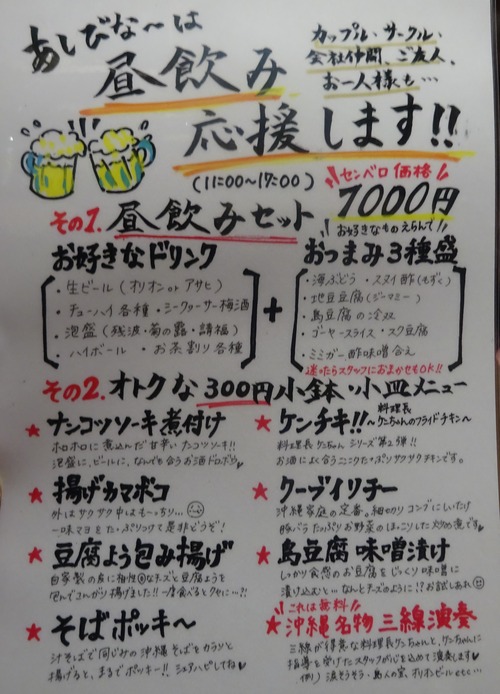 あしびな～は
昼飲み
応援します!!
カップル・サークル・
会社仲間、ご友人、
お一人様も…
(11:00～17:00)
センベロ価格
1000円
その1. 昼飲みセット
お好きなものえらんで
お好きなドリンク
・生ビール(オリオン or アサヒ)
・チューハイ各種・シークヮーサー梅酒
・泡盛(残波・菊の露・請福)
・ハイボール ・お茶割り各種
+
おつまみ3種盛
・海ぶどう・スヌイ酢(もずく)
・地豆豆腐(ジーマミー)
・島豆腐の冷奴
・ゴーヤースライス・スク豆腐
・ミミガー酢味噌合え
迷ったらスタッフにおまかせもOK!!
その2. オトクな300円小鉢・小皿メニュー
★ナンコツソーキ煮付け
ホロホロに煮込んだ甘辛いナンコツソーキ!!
泡盛に、ビールに、なんでも合うお酒ドロボウ
★揚げカマボコ
外はサクサク中はもっちり…
一味マヨをたっぷりつけて是非どうぞ!
★豆腐よう包み揚げ
自家製の皮に相性◎なチーズと豆腐ようを
包んでこんがり揚げました!!一度食べるとクセに…?!
★そばポッキ～
汁そばで同じみの沖縄そばをカラッと
揚げると、まるでポッキー!! シェアハピしてね
★ケンチキ!!～料理長ケンちゃんのフライドチキン～
料理長ケンちゃんシリーズ第2弾!!
お酒によく合うニンニクたっぷりサクサクチキンです。
★クーブイリチー
沖縄家庭の定番。細切りコンブにしいたけ
豚バラたっぷりお野菜のほっこりした炒め煮です
★島豆腐味噌漬け
しっかり食感のお豆腐をじっくり味噌に
漬け込むと…なんとチーズのように!?お試しあれ
これは無料!!
★沖縄名物 三線演奏
三線が得意な料理長ケンちゃんと、ケンちゃんに
指導を受けたスタッフが心を込めて演奏します
例)涙そうそう・島人の宝、オリオンビール etc…